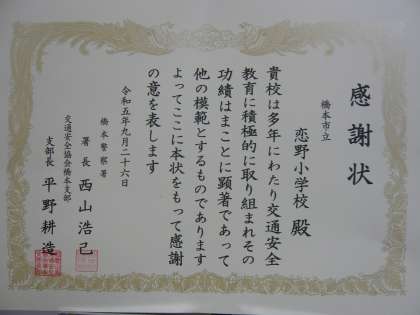 感謝状
橋本市立
恋野小学校 殿
貴校は多年にわたり交通安全
教育に積極的に取り組まれその
功績はまことに顕著であって
他の模範とするものであります
よってここに本状をもって感謝
の意を表します
令和五年九月二十六日
橋本警察署
署長 西山浩己
交通安全協会橋本支部
支部長 平野耕造